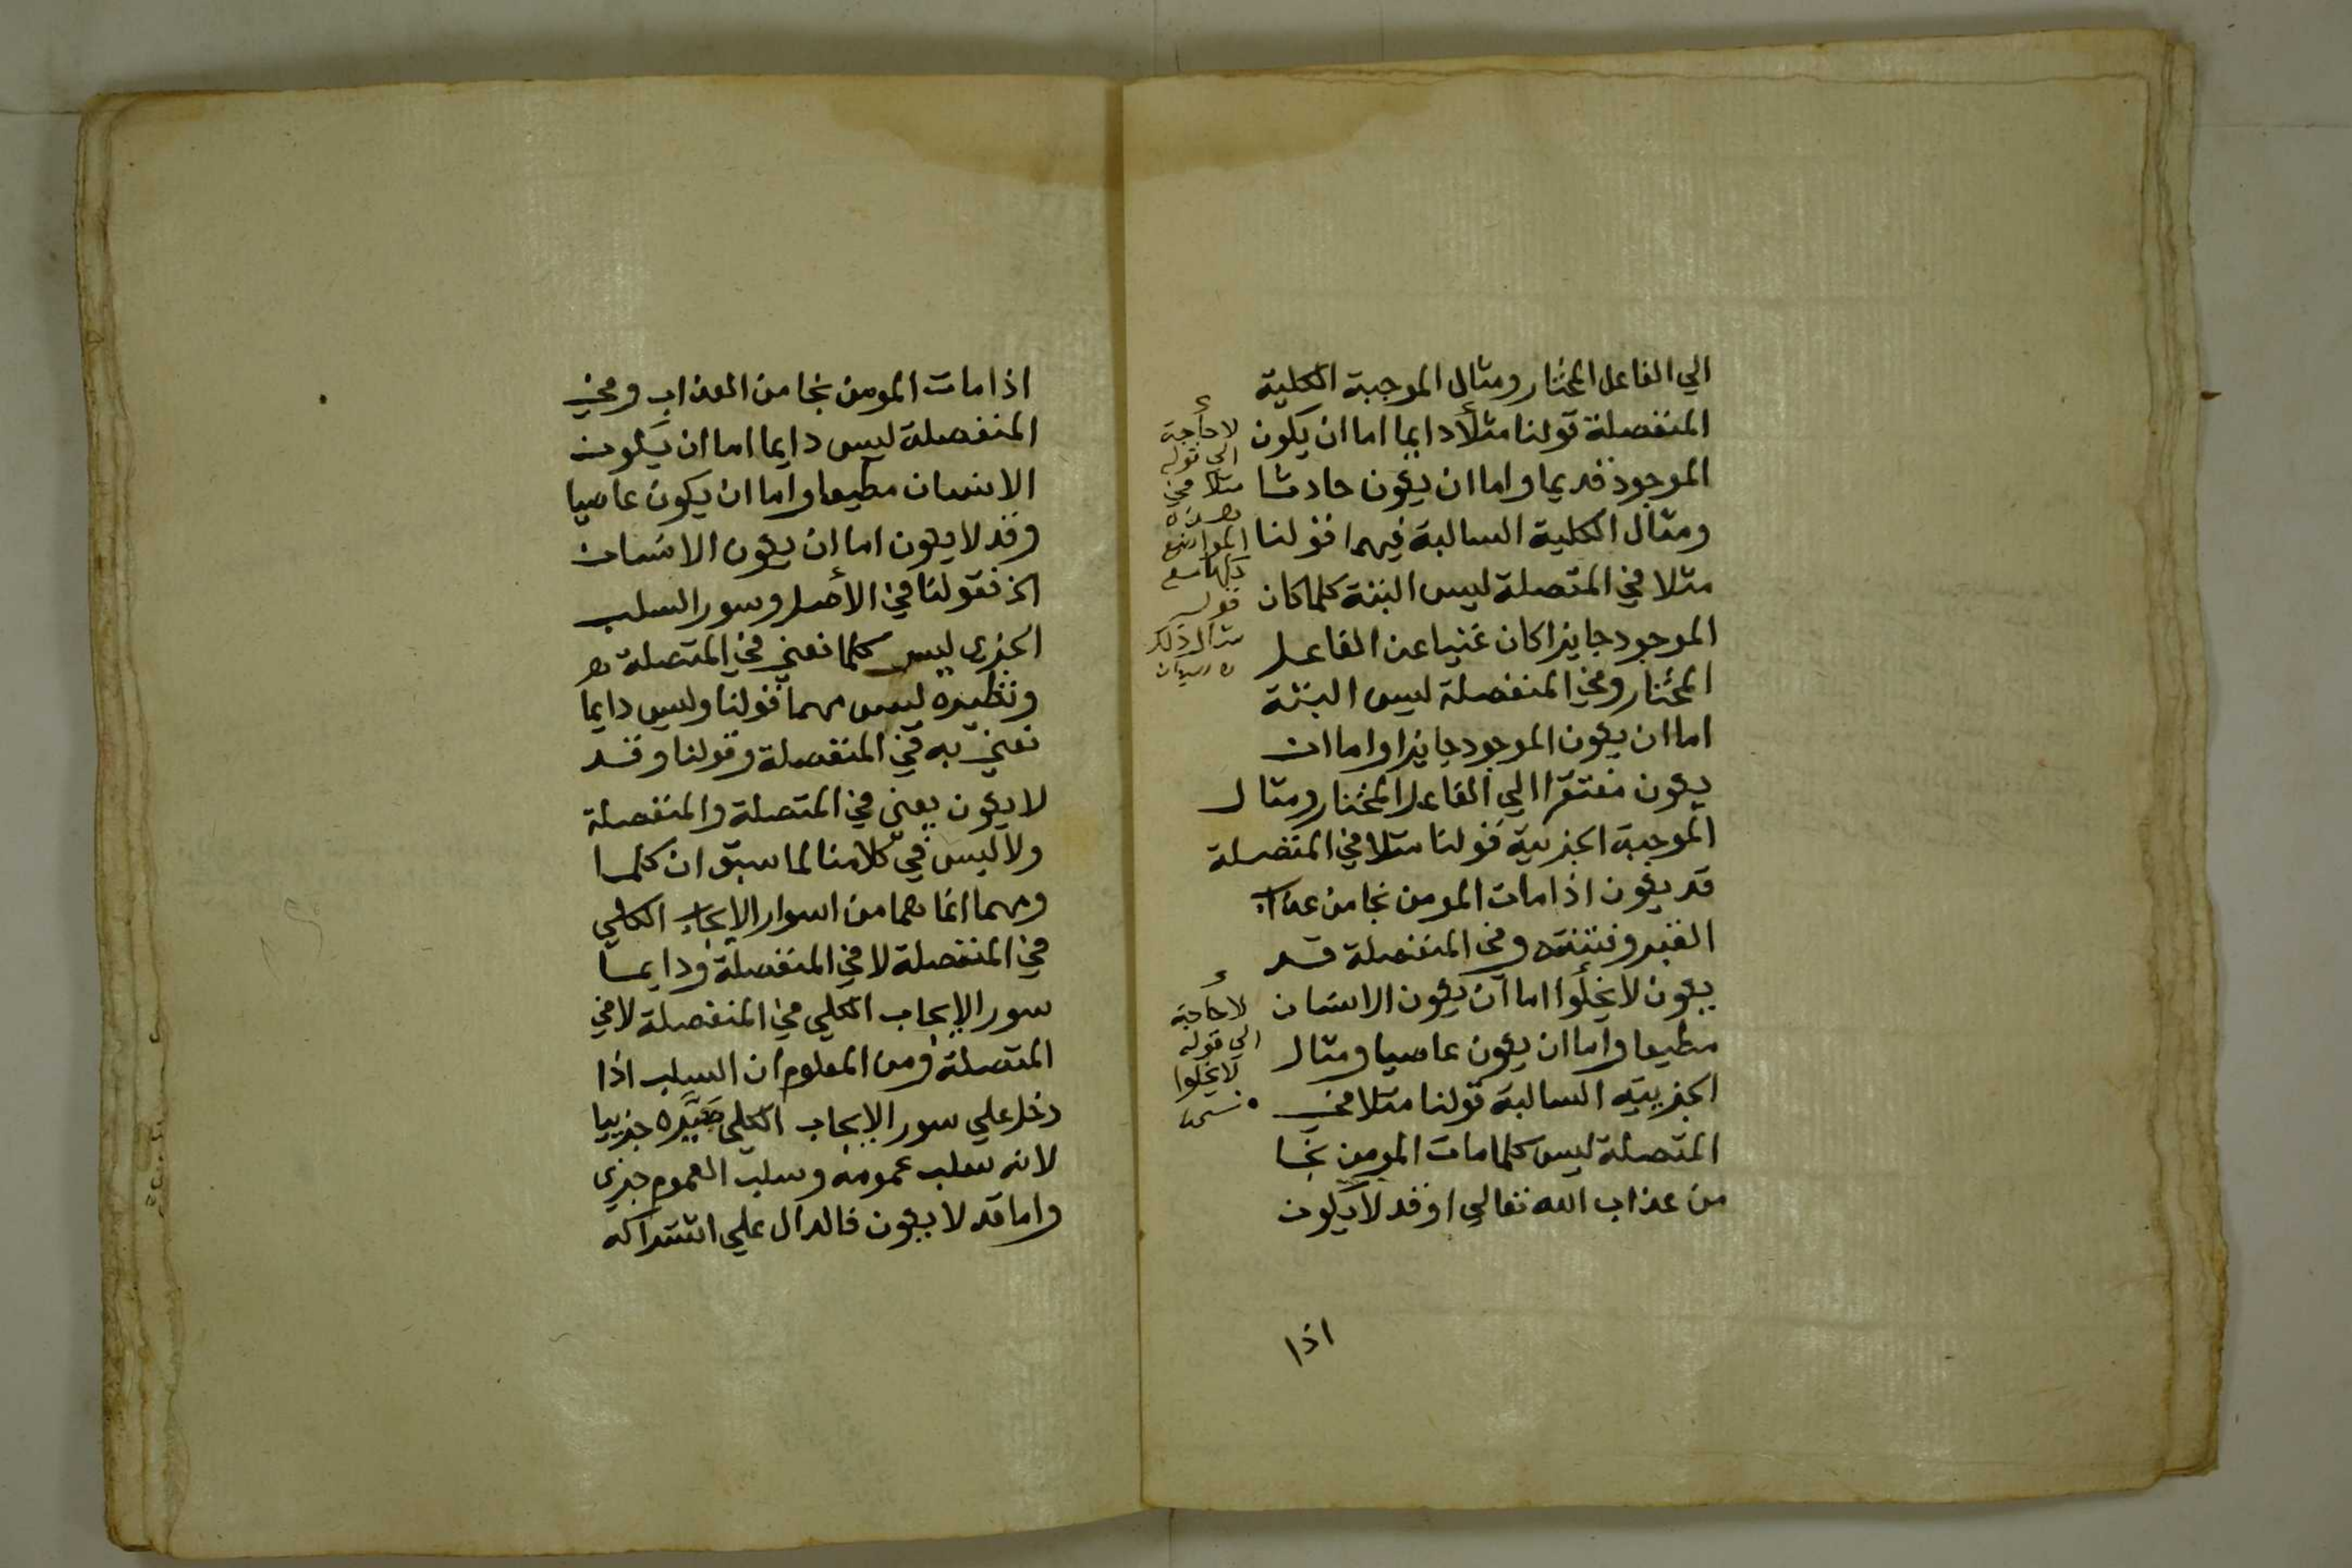 الي الفاعل المختار ومثال الموجبة الكلية
المنفصلة قولنا مثلا دايما اما ان يكون
الموجود قديما واما ان يكون حادثا
ومثال الكلية السالبة فيهما قولنا
مثلا في المتصلة ليس البتة كلما كان
الموجود جايزا كان غنيا عن الفاعل
المختار وفي المنفصلة ليس البتة
اما ان يكون الموجود جايزا واما ان
يكون مفتقرا الي الفاعل المختار ومثال
الموجبة الجزيية قولنا مثلا في المتصلة
قد يكون اذا مات المومن نجا من عذاب
القبر وفتنته وفي المنفصلة قد
يكون لا يخلوا اما ان يكون الانسان
مطيعا واما ان يكون عاصيا ومثال
الجزييه السالبة قولنا مثلا في
المتصلة ليس كلما مات المومن نجا
من عذاب الله تعالي او قد لا يكون
اذا
لا حاجة
الي قوله
مثلا في
هذه
المواضع
كلها مع
قوله
مثال ذلك
لا حاجة
الي قوله
لا يخلوا
اذا مات المومن نجا من العذاب وفي
المنفصلة ليس دايما اما ان يكون
الانسان مطيعا واما ان يكون عاصيا
وقد لا يكون اما ان يكون الانسان
الخ فقولنا في الأصل وسور السلب
الجزي ليس كلما نعني في المتصلة
ونظيره ليس مهما قولنا وليس دايما
نعني به في المنفصلة وقولنا وقد
لا يكون يعني في المتصلة والمنفصلة
ولا ليس في كلامنا لما سبق ان كلما
ومهما انما هما من اسوار الايجاب الكلي
في المتصلة لا في المنفصلة ودايما
سور الايجاب الكلي في المنفصلة لا في
المتصلة ومن المعلوم ان السلب اذا
دخل علي سور الايجاب الكلي صيره جزييا
لانه سلب عمومه وسلب العموم جزي
واما قد لا يكون فالدال علي اشتراكه